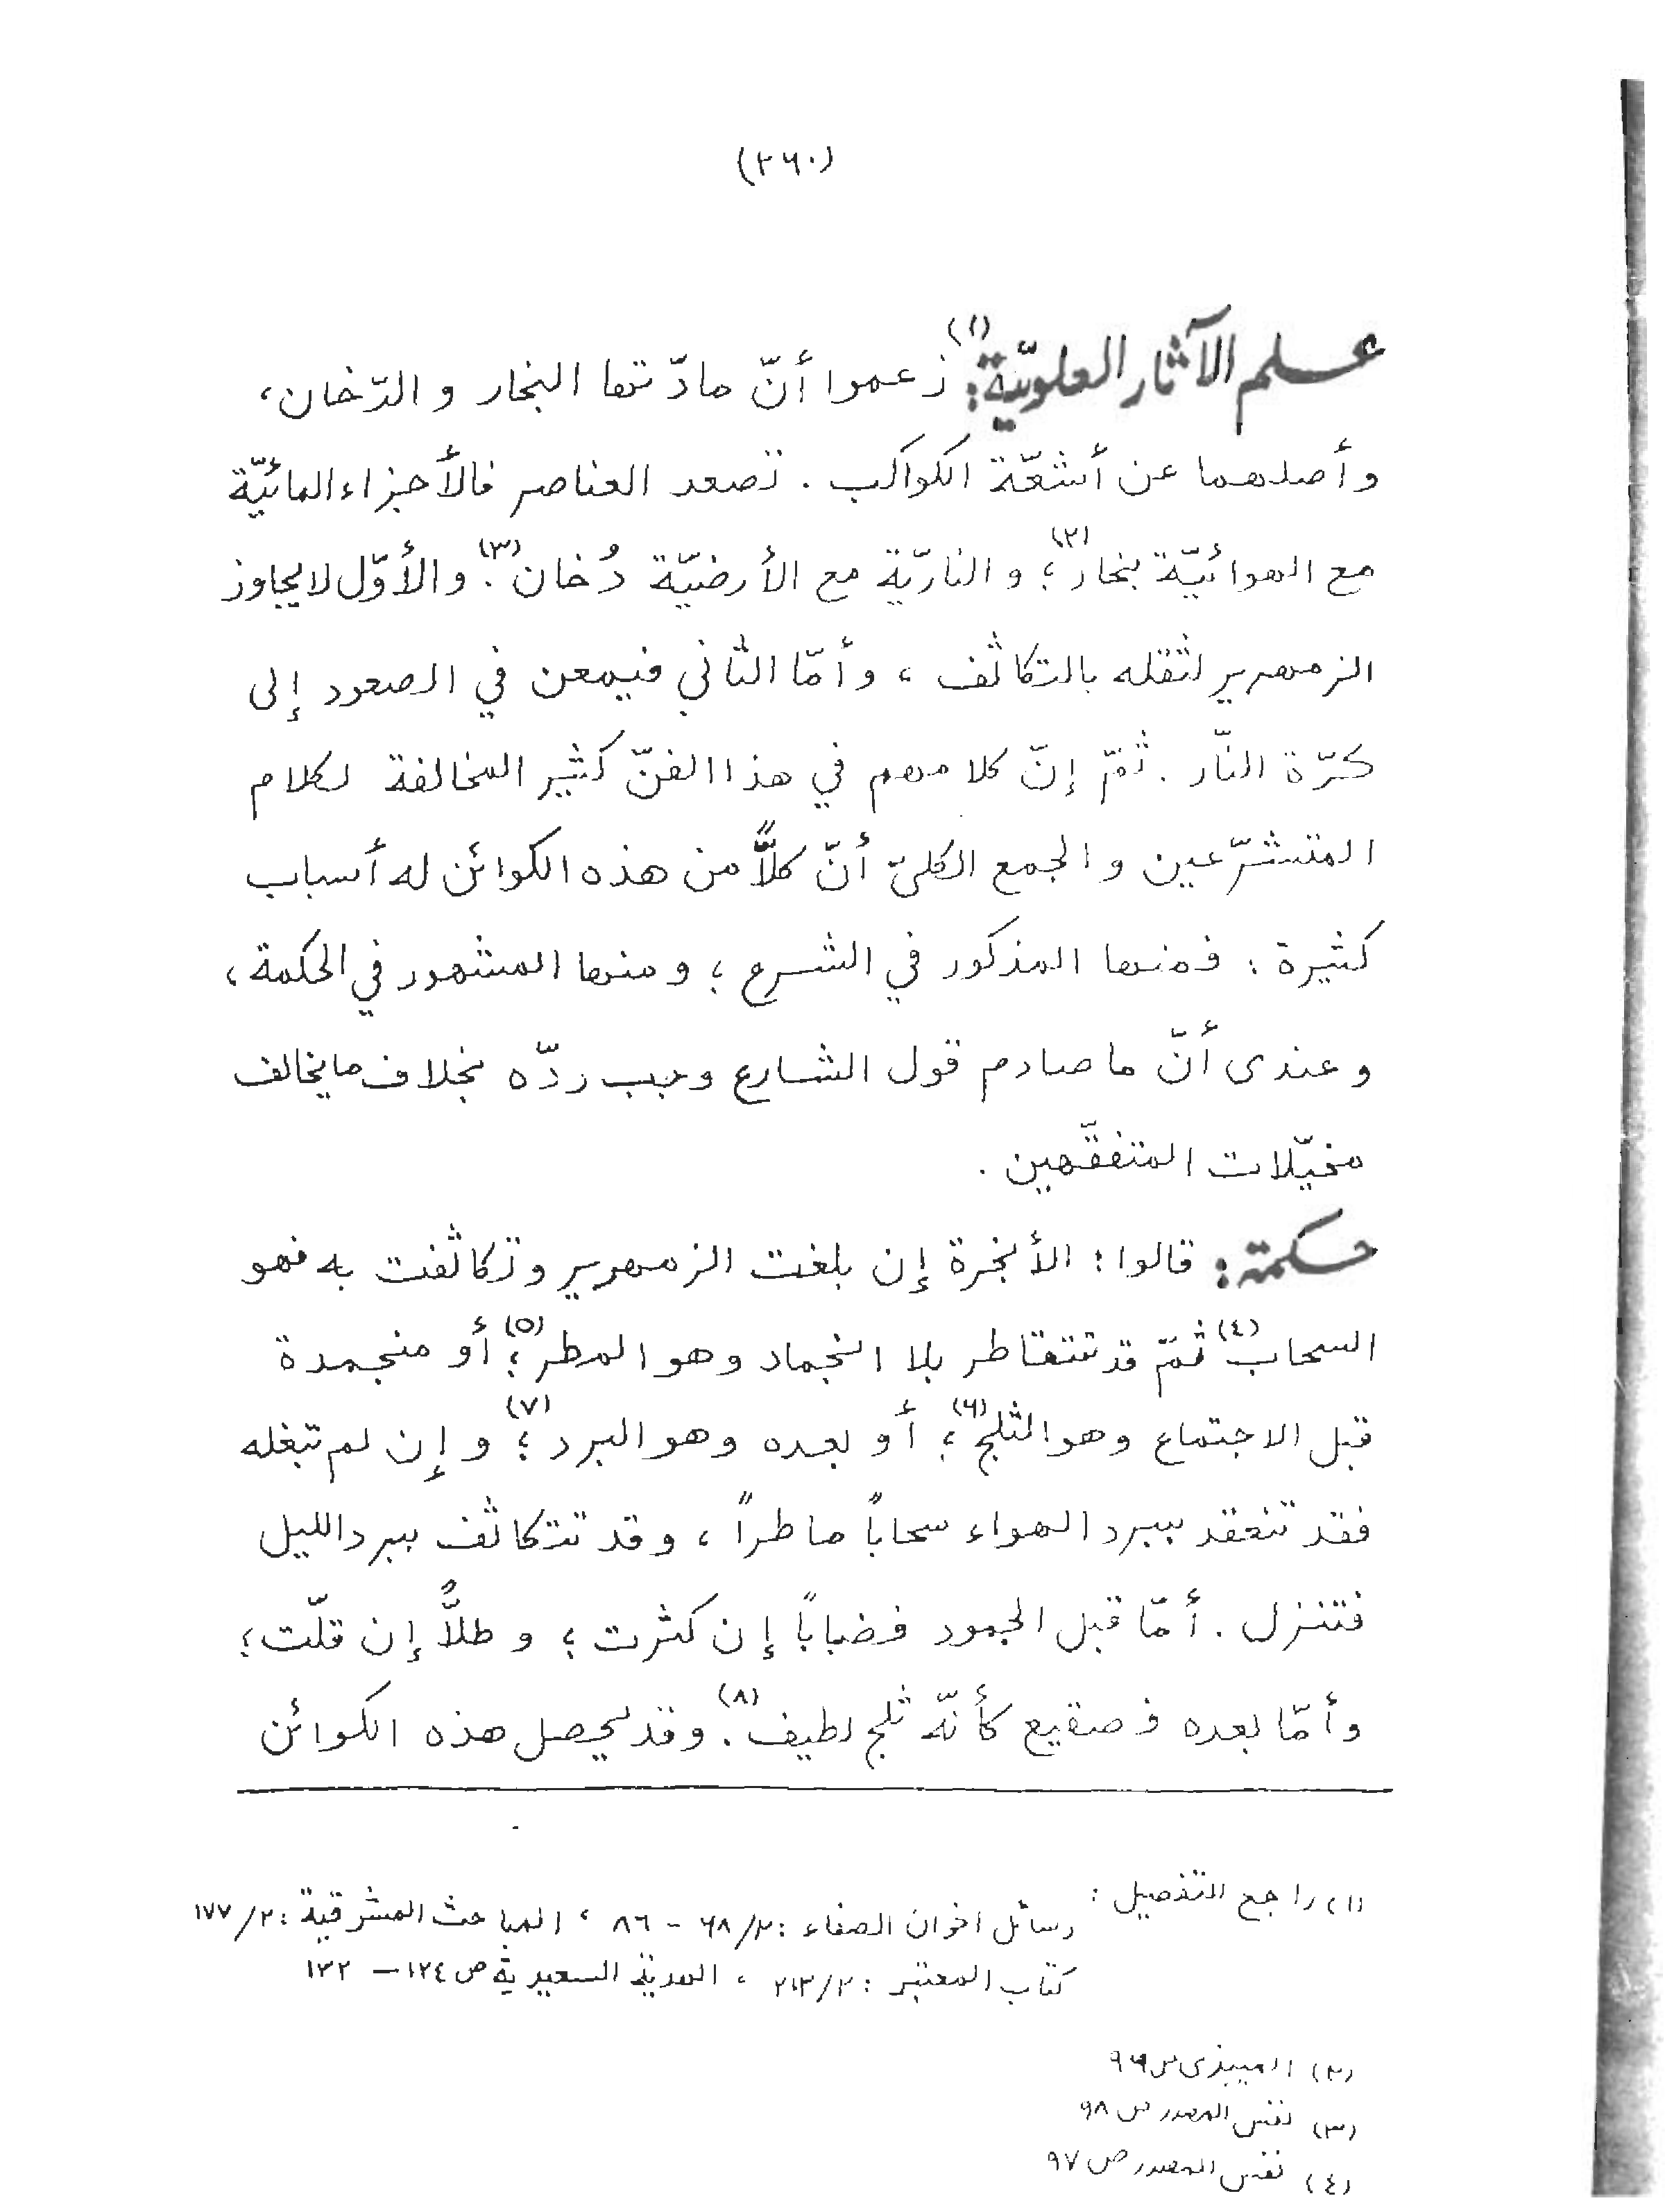 (٢٦٠)
علم الآثار العلويّة:(١) زعموا أنّ مادّتها البخار و الدّخان،
وأصلهما عن أشعّة الكواكب . تصعد العناصر فالأجزاء المائيّة
مع الهوائيّة بخار(٢)؛ و الناريّة مع الأرضيّة دُخان(٣). والأوّل لايجاوز
الزمهرير لثقله بالتكاثف ، وأمّا الثاني فيمعن في الصعود إلى
كرّة النّار . ثمّ إنّ كلامهم في هذا الفنّ كثير المخالفة لكلام
المتشرّعين والجمع الكليّ أنّ كلاًّ من هذه الكوائن له أسباب
كثيرة : فمنها المذكور في الشرع ؛ ومنها المشهور في الحكمة ،
وعندى أنّ ماصادم قول الشارع وجب ردّه بخلاف مايخالف
مخيّلات المتفقّهين .
حكمة: قالوا : الأبخرة إن بلغت الزمهرير وتكاثفت به فهو
السحاب(٤) ثمّ قد تتقاطر بلا انجماد وهو المطر(٥)؛ أو منجمدة
قبل الاجتماع وهو الثلج(٦)؛ أو بعده وهو البرد(٧)؛ وإن لم تبغله
فقد تنعقد ببرد الهواء سحاباً ماطراً ، وقد تتكاثف ببرد الليل
فتنزل . أمّا قبل الجمود فضباباً إن كثرت ؛ و طلاًّ إن قلّت ؛
وأمّا بعده فصقيع كأنّه ثلج لطيف(٨). وقد يحصل هذه الكوائن
(١) راجع التفصيل : رسائل اخوان الصفاء : ٢/٦٨ - ٨٦ ، المباحث المشرقية : ٢/١٧٧
كتاب المعتبر : ٢/٢١٣ ، الهدية السعيدية ص ١٢٤ – ١٣٢
(٢) الميبذى ص ٩٦
(٣) نفس المصدر ص ٩٨
(٤) نفس المصدر ص ٩٧